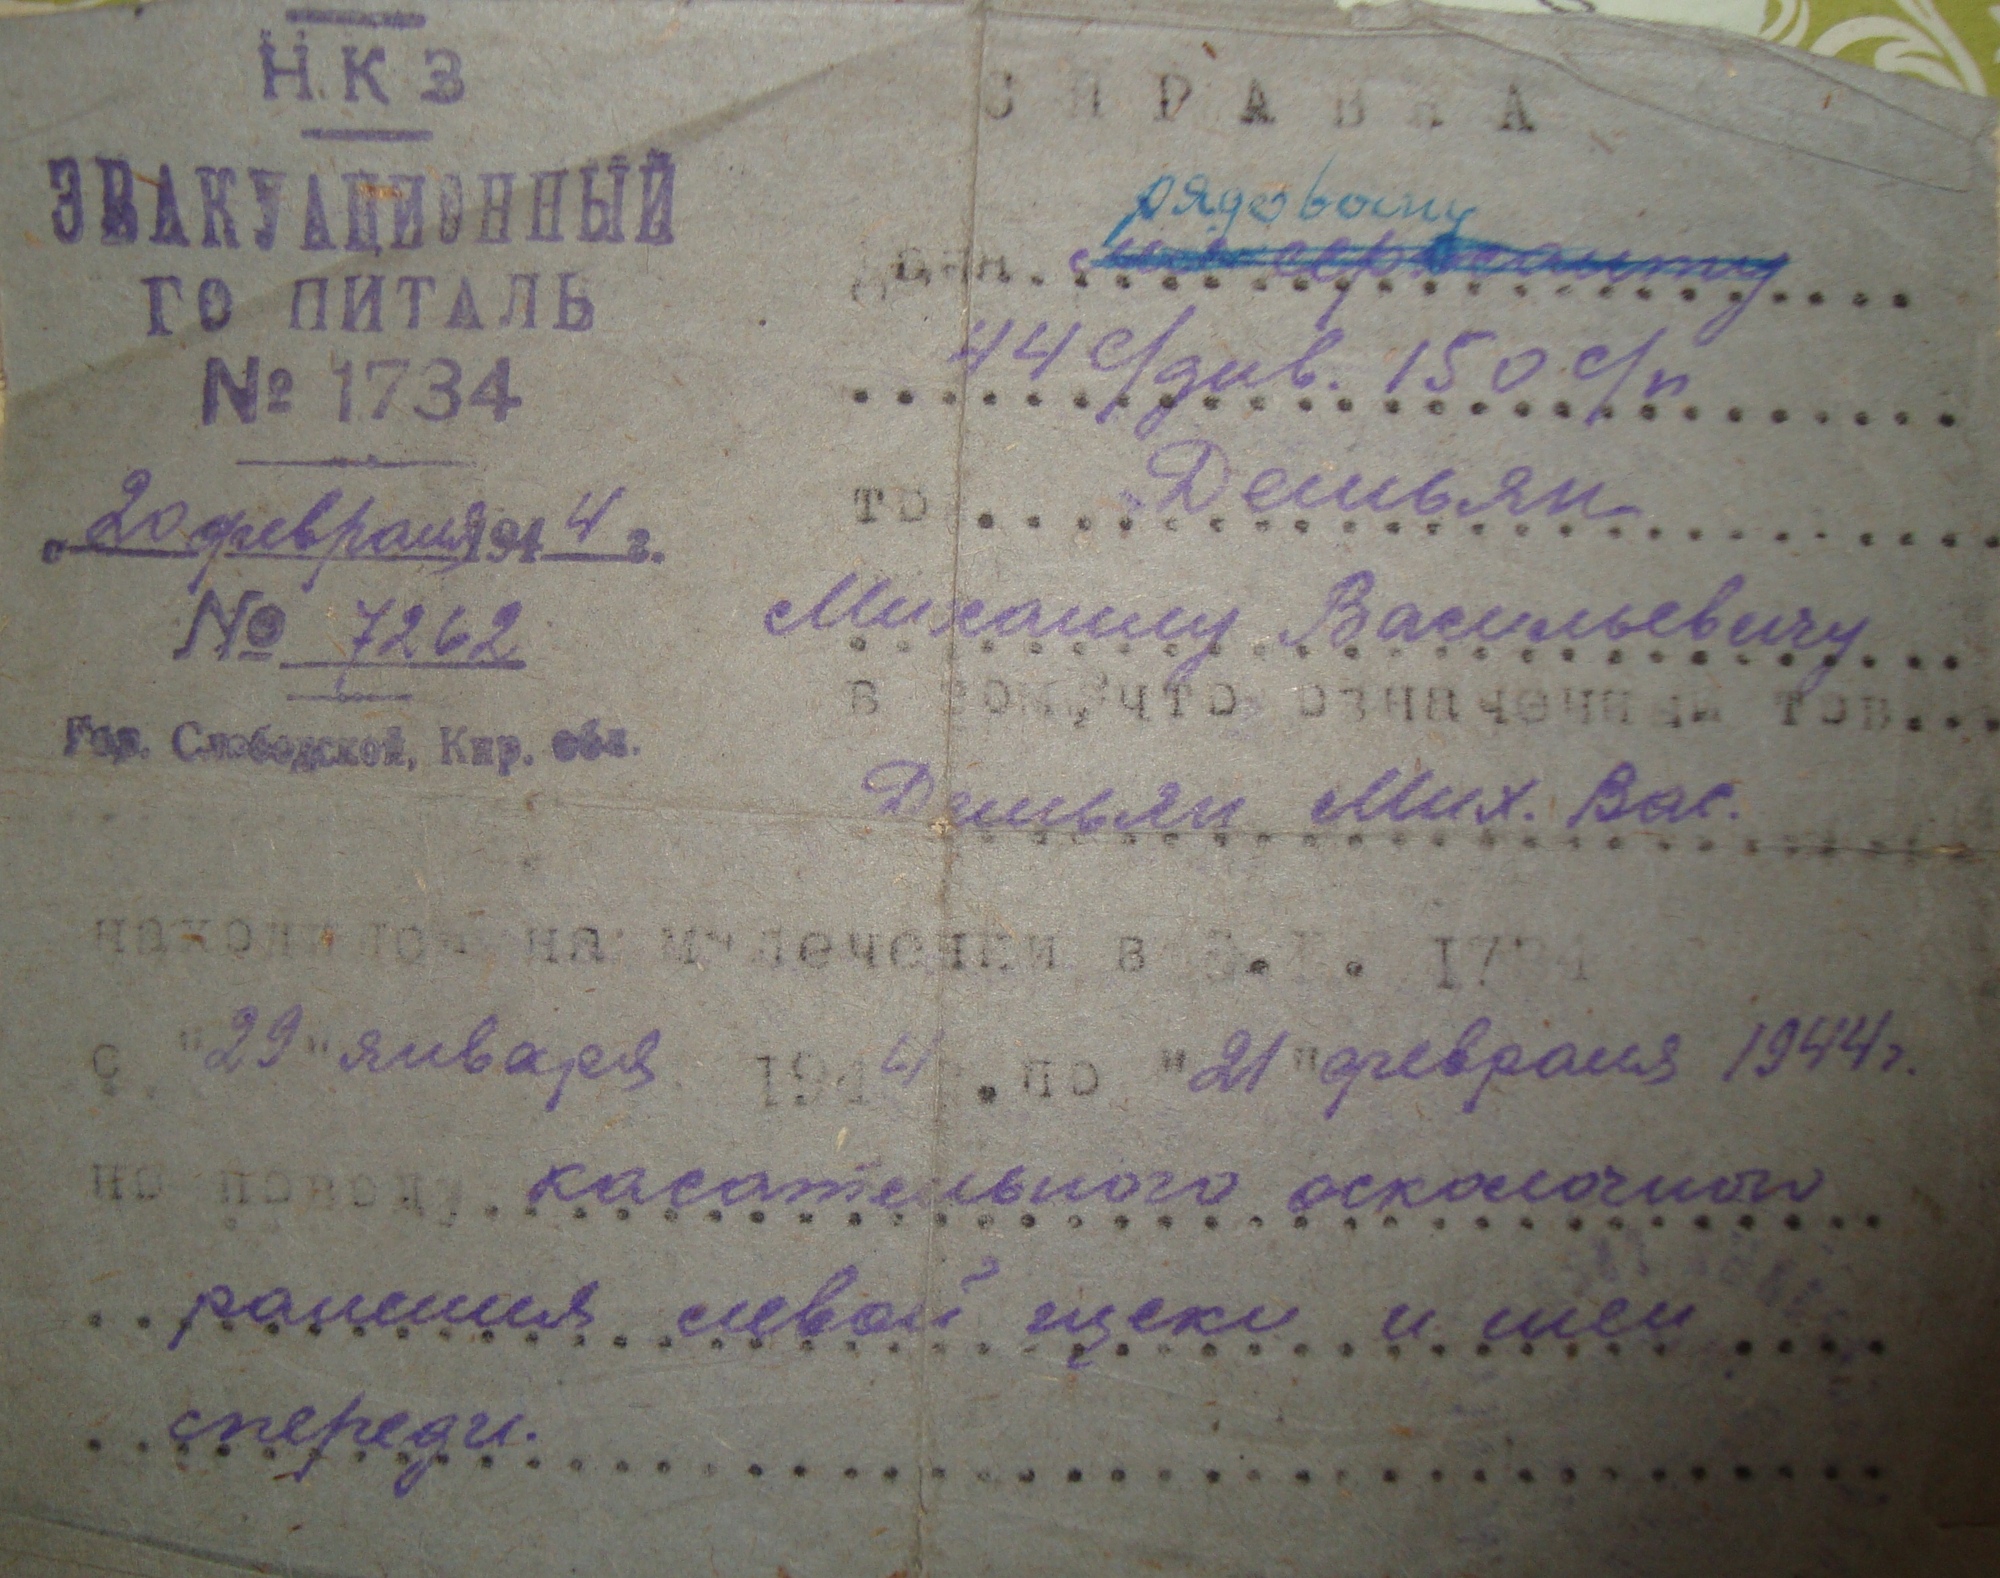 НКЗ
ЭВАКУАЦИОННЫЙ
ГОСПИТАЛЬ
№ 1734
"20 февраля 1944 г.
№ 7262
Гор. Слободской, Кир. обл.
СПРАВКА
рядовому
Дана мл. сержанту
44 с/див. 150 с/п
тов. Демьян
Михаилу Васильевичу
в том, что означенный тов...
Демьян Мих. Вас.
находился на излечении в Э.Г. 1734
с "29" января 1944 г. по "21" февраля 1944 г.
по поводу касательного осколочного
ранения левой щеки и шеи
спереди.